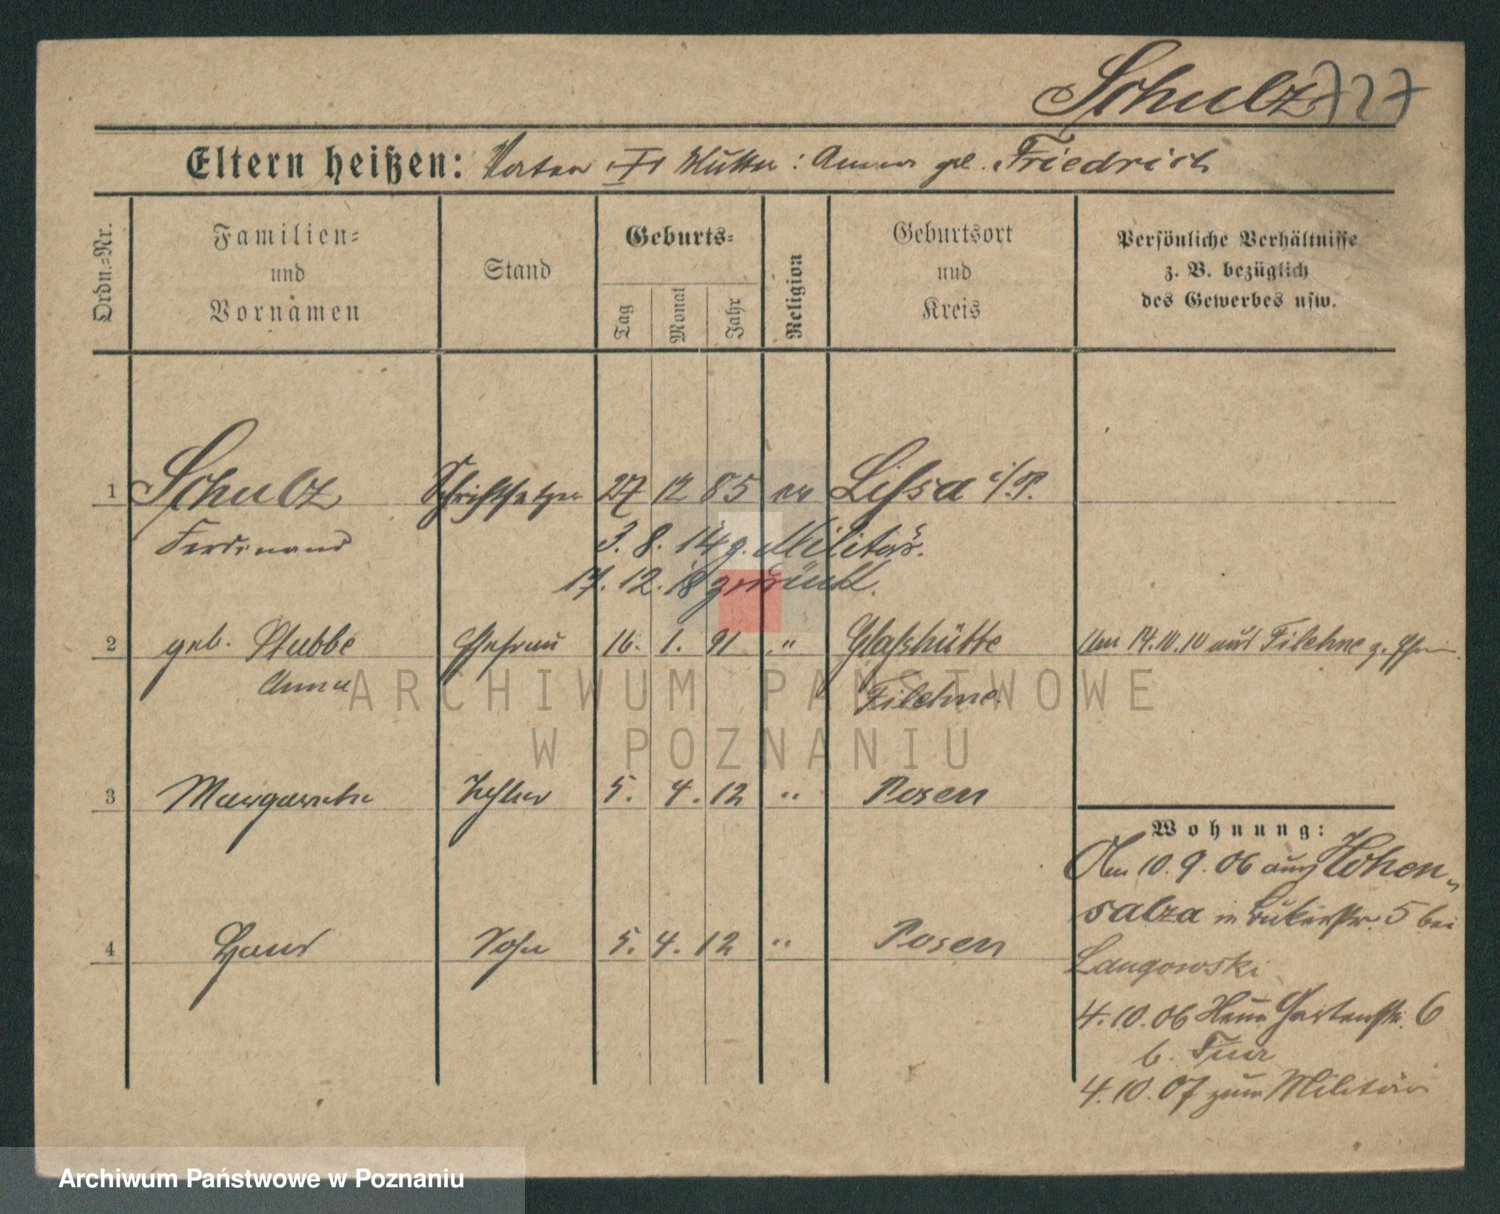 Schulz 727
Eltern heißen: Vater Mutter: Anna geb. Friedrich
Ordn.-Nr.
Familien-
und
Vornamen
Stand
Geburts-
Tag
Monat
Jahr
Religion
Geburtsort
und
Kreis
Persönliche Verhältnisse
z. B. bezüglich
des Gewerbes usw.
1 Schulz Schriftsetzer 27 12 85 ev Lissa i/P.
Ferdinand 3. 8. 14 z. Militär.
17. 12. 18 zurück.
2 geb. Stubbe Ehefrau 16. 1. 91 " Glashütte Am 14.10.10 aus Filehne z. Ehem.
Anna Filehne
3 Margarete Tochter 5. 4. 12 " Posen
4 Hans Sohn 5. 4. 12 " Posen
Wohnung:
Am 10. 9. 06 aus Hohen-
salza in Bukerstr. 5 bei
Langowski
4. 10. 06 Gartenstr. 6
b.
4. 10. 07 zum Militär
ARCHIWUM PAŃSTWOWE
W POZNANIU
Archiwum Państwowe w Poznaniu